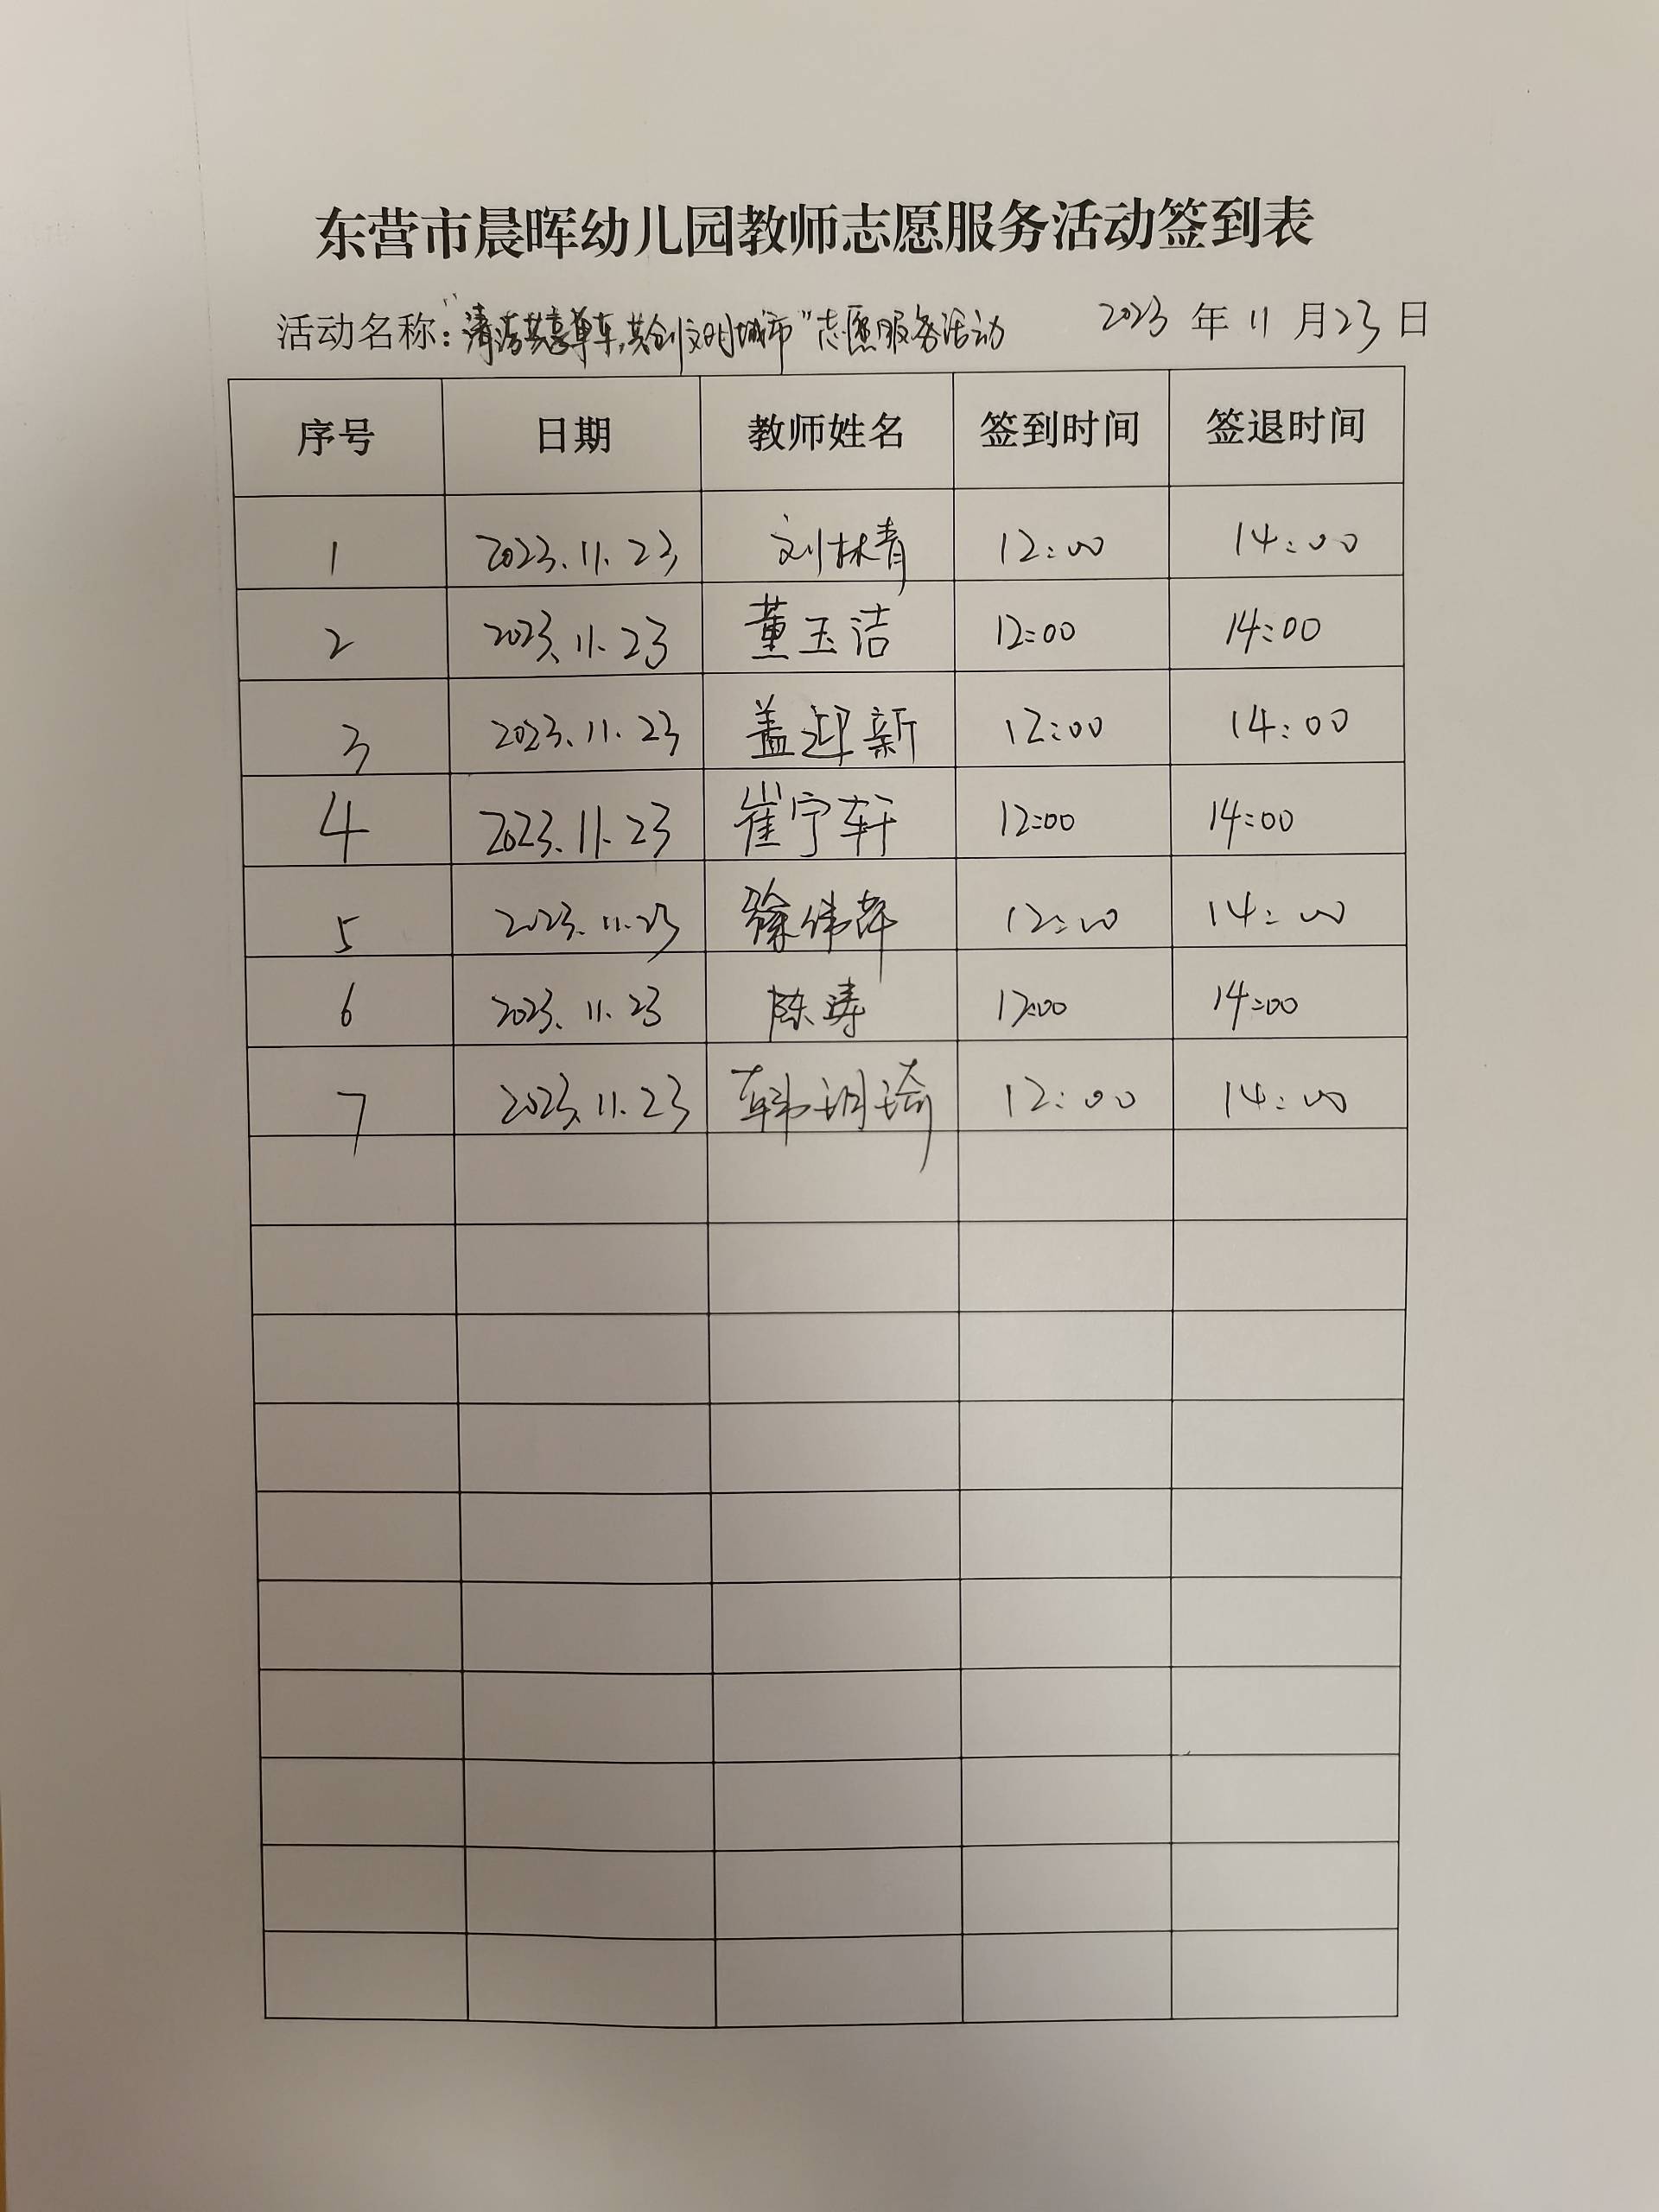 东营市晨晖幼儿园教师志愿服务活动签到表
活动名称：“清洁共享单车，共创文明城市”志愿服务活动 2023年11月23日
序号 日期 教师姓名 签到时间 签退时间
1 2023.11.23 刘林青 12:00 14:00
2 2023.11.23 董玉洁 12:00 14:00
3 2023.11.23 盖迎新 12:00 14:00
4 2023.11.23 崔宁轩 12:00 14:00
5 2023.11.23 徐伟萍 12:00 14:00
6 2023.11.23 陈涛 12:00 14:00
7 2023.11.23 韩玥琦 12:00 14:00